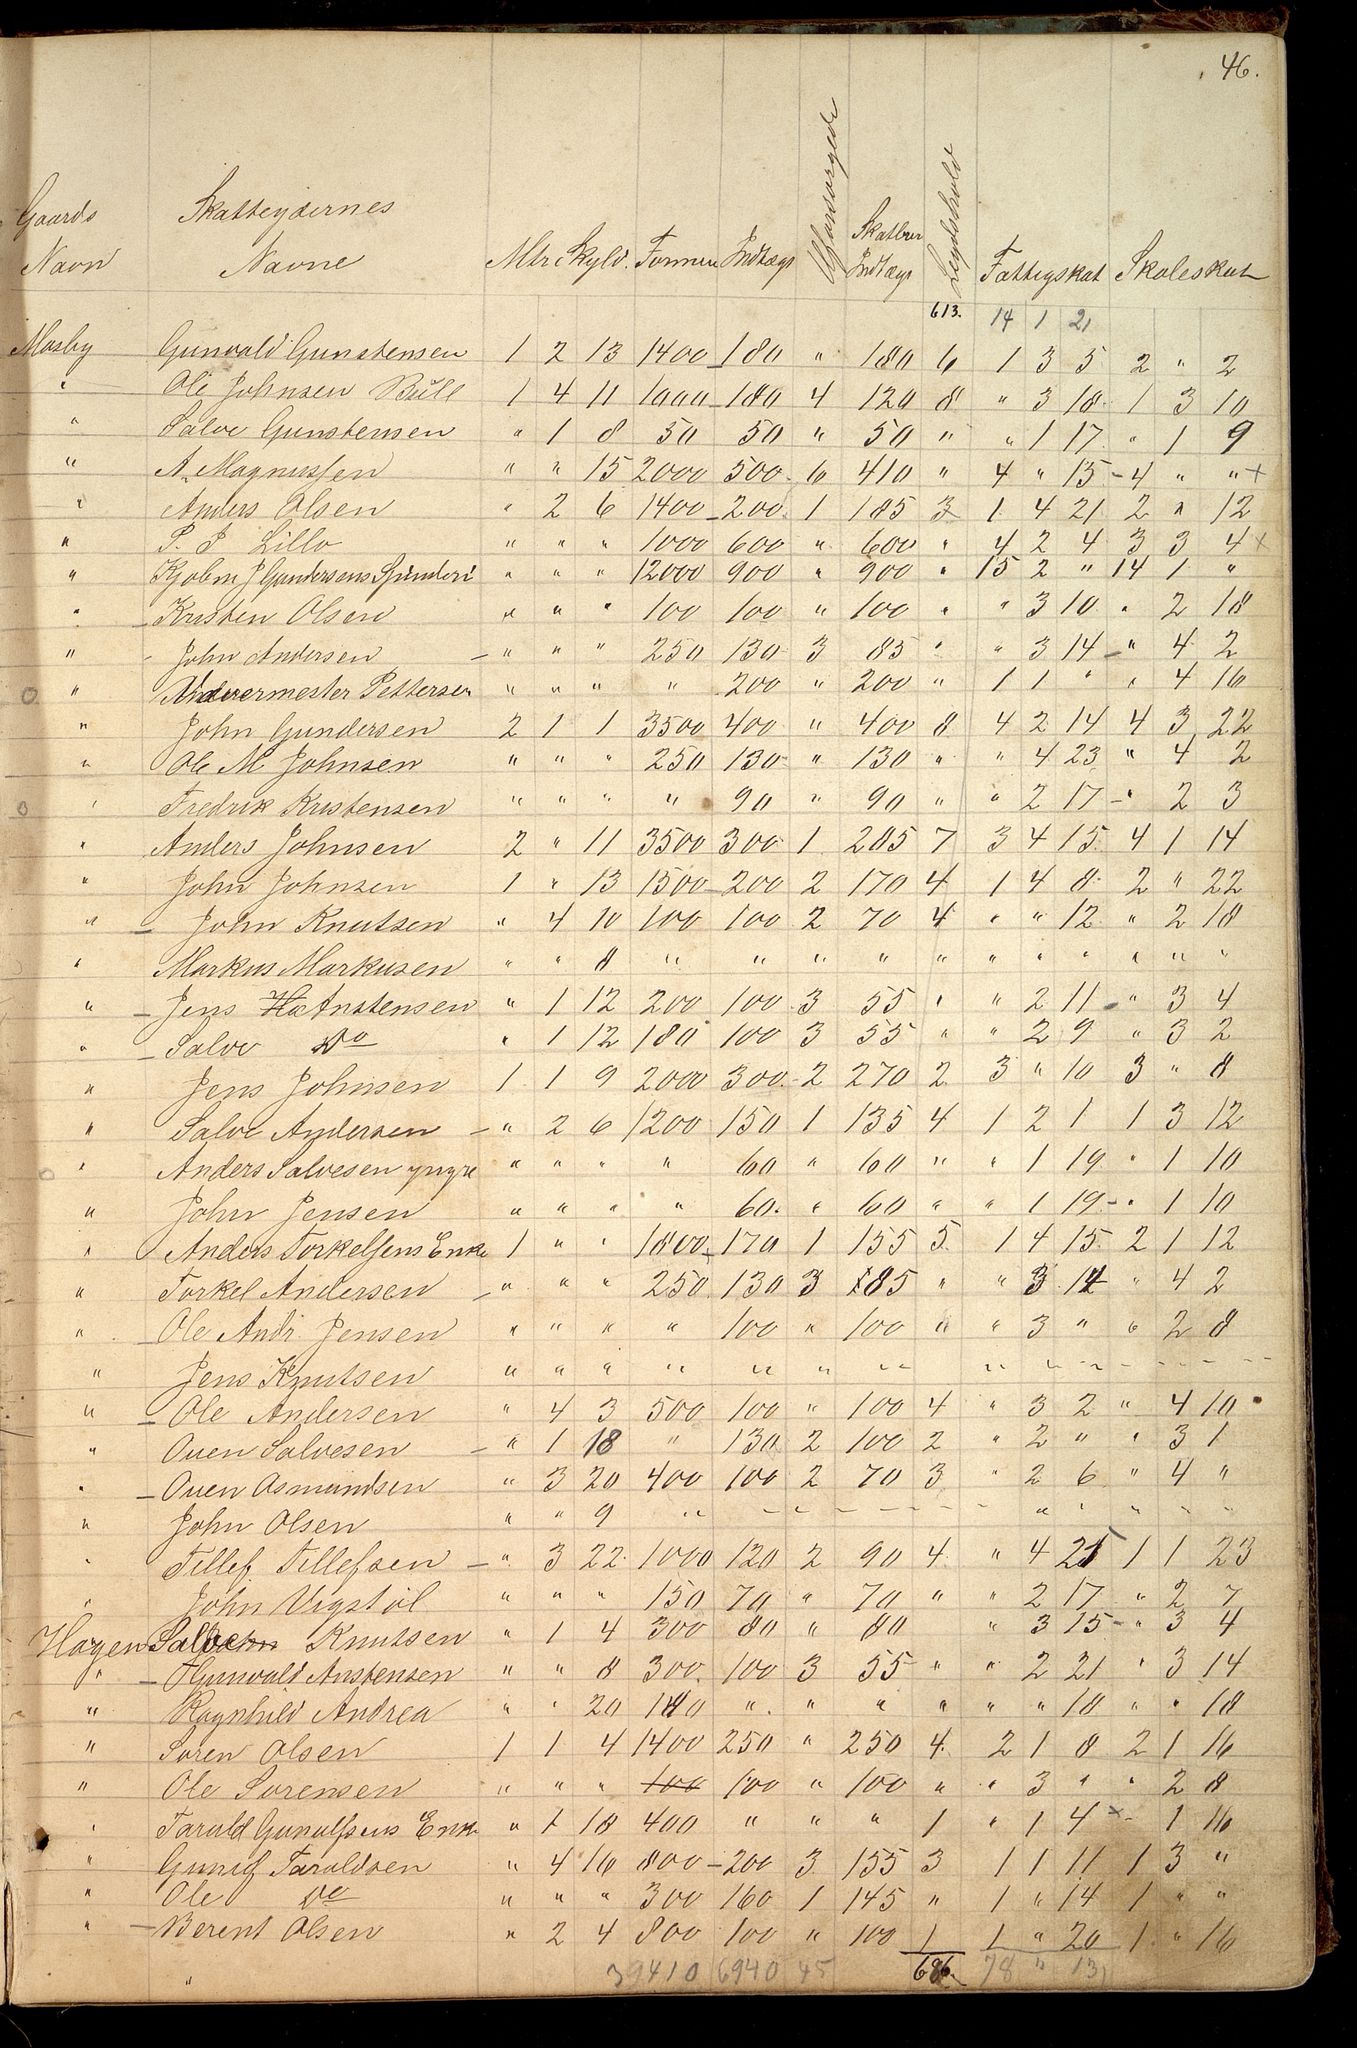 46.
Gaards Navn Skatteydernes Navne Mtr Skyld. Formue Indtægt Forsørgede Skatbar Indtægt Lægdehold Fattigskat Skoleskat
613. 14 1 21
Mosby Gunvald Gunstensen 1 2 13 1400 180 " 180 6 1 3 5 2 " 2
" Ole Johnsen Bull 1 4 11 1000 180 4 120 8 " 3 18 1 3 10
" Salve Gunstensen " 1 8 50 50 " 50 " " 1 17 " 1 9
" A. Magnussen " " 15 2000 500 6 410 " 4 " 15 4 " " +
" Anders Olsen " 2 6 1400 200 1 185 3 1 4 21 2 " 12
" P. J Lillo " " " 1000 600 " 600 " 4 2 4 3 3 4 +
" J Gundersens Spinderi " " " 12000 900 " 900 " 15 2 " 14 1 "
" Kristen Olsen " " " 100 100 " 100 " " 3 10 " 2 18
" John Andersen " " " 250 130 3 85 " " 3 14 " 4 2
0 " Pettersen " " " " 200 " 200 " 1 1 " " 4 16
" John Gundersen 2 1 1 3500 400 " 400 8 4 2 14 4 3 22
" Ole M Johnsen " " " 250 130 " 130 " " 4 23 " 4 2
0 " Fredrik Kristensen " " " " 90 " 90 " " 2 17 " 2 3
" Anders Johnsen 2 " 11 3500 300 1 285 7 3 4 15 4 1 14
" John Johnsen 1 " 13 1500 200 2 170 4 1 4 8 2 " 22
" John Knutsen " 4 10 100 100 2 70 4 " " 12 " 2 18
" Markus Markusen " " 8 " " " " " " " " " " "
" Jens Anstensen " 1 12 200 100 3 55 " " 2 11 " 3 4
" Salve Do " 1 12 180 100 3 55 " " 2 9 " 3 2
" Jens Johnsen 1 1 9 2000 300 2 270 2 3 " 10 3 " 8
" Salve Andersen " 2 6 1200 150 1 135 4 1 2 1 1 3 12
0 " Anders Salvesen yngre " " " " 60 " 60 " " 1 19 " 1 10
" John Jensen " " " " 60 " 60 " " 1 19 " 1 10
" Anders Torkelsens Enke 1 " " 1800 170 1 155 5 1 4 15 2 1 12
" Torkel Andersen " " " 250 130 3 85 " " 3 14 " 4 2
" Ole Andr. Jensen " " " " 100 " 100 " " 3 " " 2 8
" Jens Knutsen " " " " " " " " " " " " " "
" Ole Andersen " 4 3 500 100 " 100 4 " 3 2 " 4 10
" Ouen Salvesen " 1 18 " 130 2 100 2 " 2 " " 3 1
" Ouen Asmundsen " 3 20 400 100 2 70 3 " 2 6 " 4 "
" John Olsen " " 9 " " " " " " " " " " "
" Tellef Tellefsen " 3 22 1000 120 2 90 4 " 4 25 1 1 23
" John Vigstøl " " " 150 70 " 70 " " 2 17 " 2 7
Hagen Salve Knutsen " 1 4 300 80 " 80 " 3 15 " 3 4
" Gunvald Anstensen " " 8 300 100 3 55 " " 2 21 " 3 14
" Ragnhild Andrea " " 20 180 " " " " " " 18 " " 18
" Søren Olsen 1 1 4 1400 250 " 250 4 2 1 8 2 1 16
" Ole Sørensen " " " 100 100 " 100 " " 3 " " 2 8
" Tarald Gunulfsens Enke " 1 18 400 " " " 1 " 1 4 + 1 16
" Gunulf Taraldsen " 4 16 800 200 3 155 3 1 1 11 1 3 "
" Ole Do " " " 300 160 1 145 " 1 " 14 1 " "
" Berent Olsen " 2 4 800 100 " 100 1 1 " 20 1 " 16
" 39410 6940 45 686 78 " 13